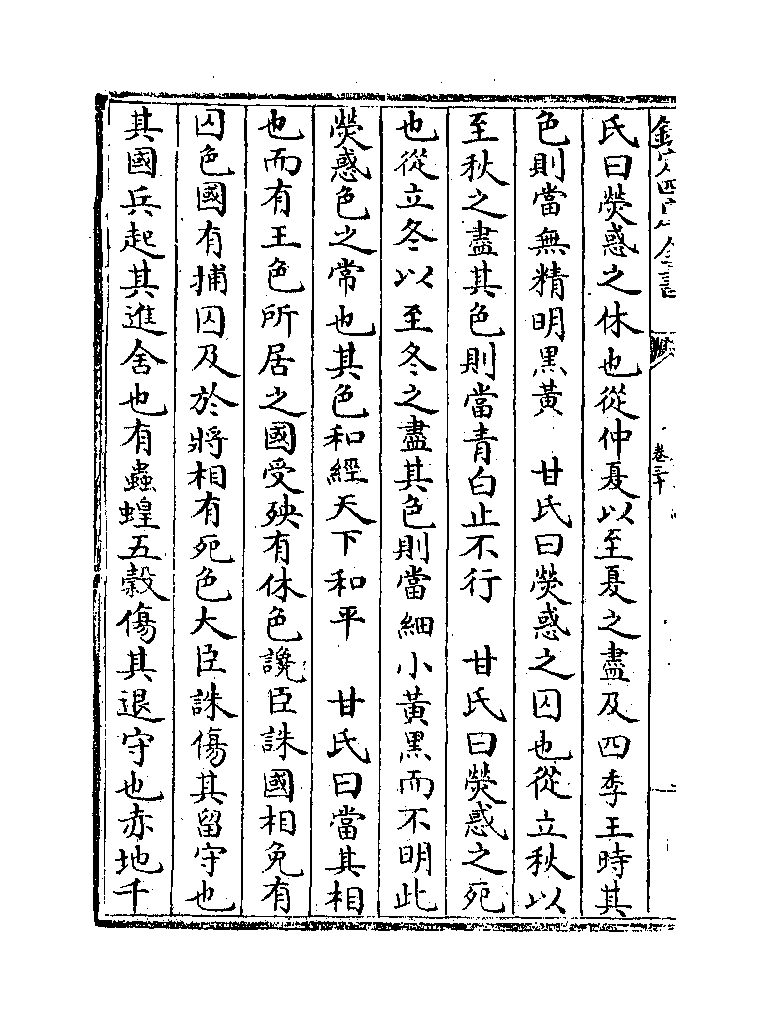 氏曰熒惑之休也從仲夏以至夏之盡及四季王時其
色則當無精明黒黃　甘氏曰熒惑之囚也從立秋以
至秋之盡其色則當青白止不行　甘氏曰熒惑之死
也從立冬以至冬之盡其色則當細小黃黒而不明此
熒惑色之常也其色和經天下和平　甘氏曰當其相
也而有王色所居之國受殃有休色讒臣誅國相免有
囚色國有捕囚及於將相有死色大臣誅傷其留守也
其國兵起其進舍也有蟲蝗五穀傷其退守也赤地千
卷三十